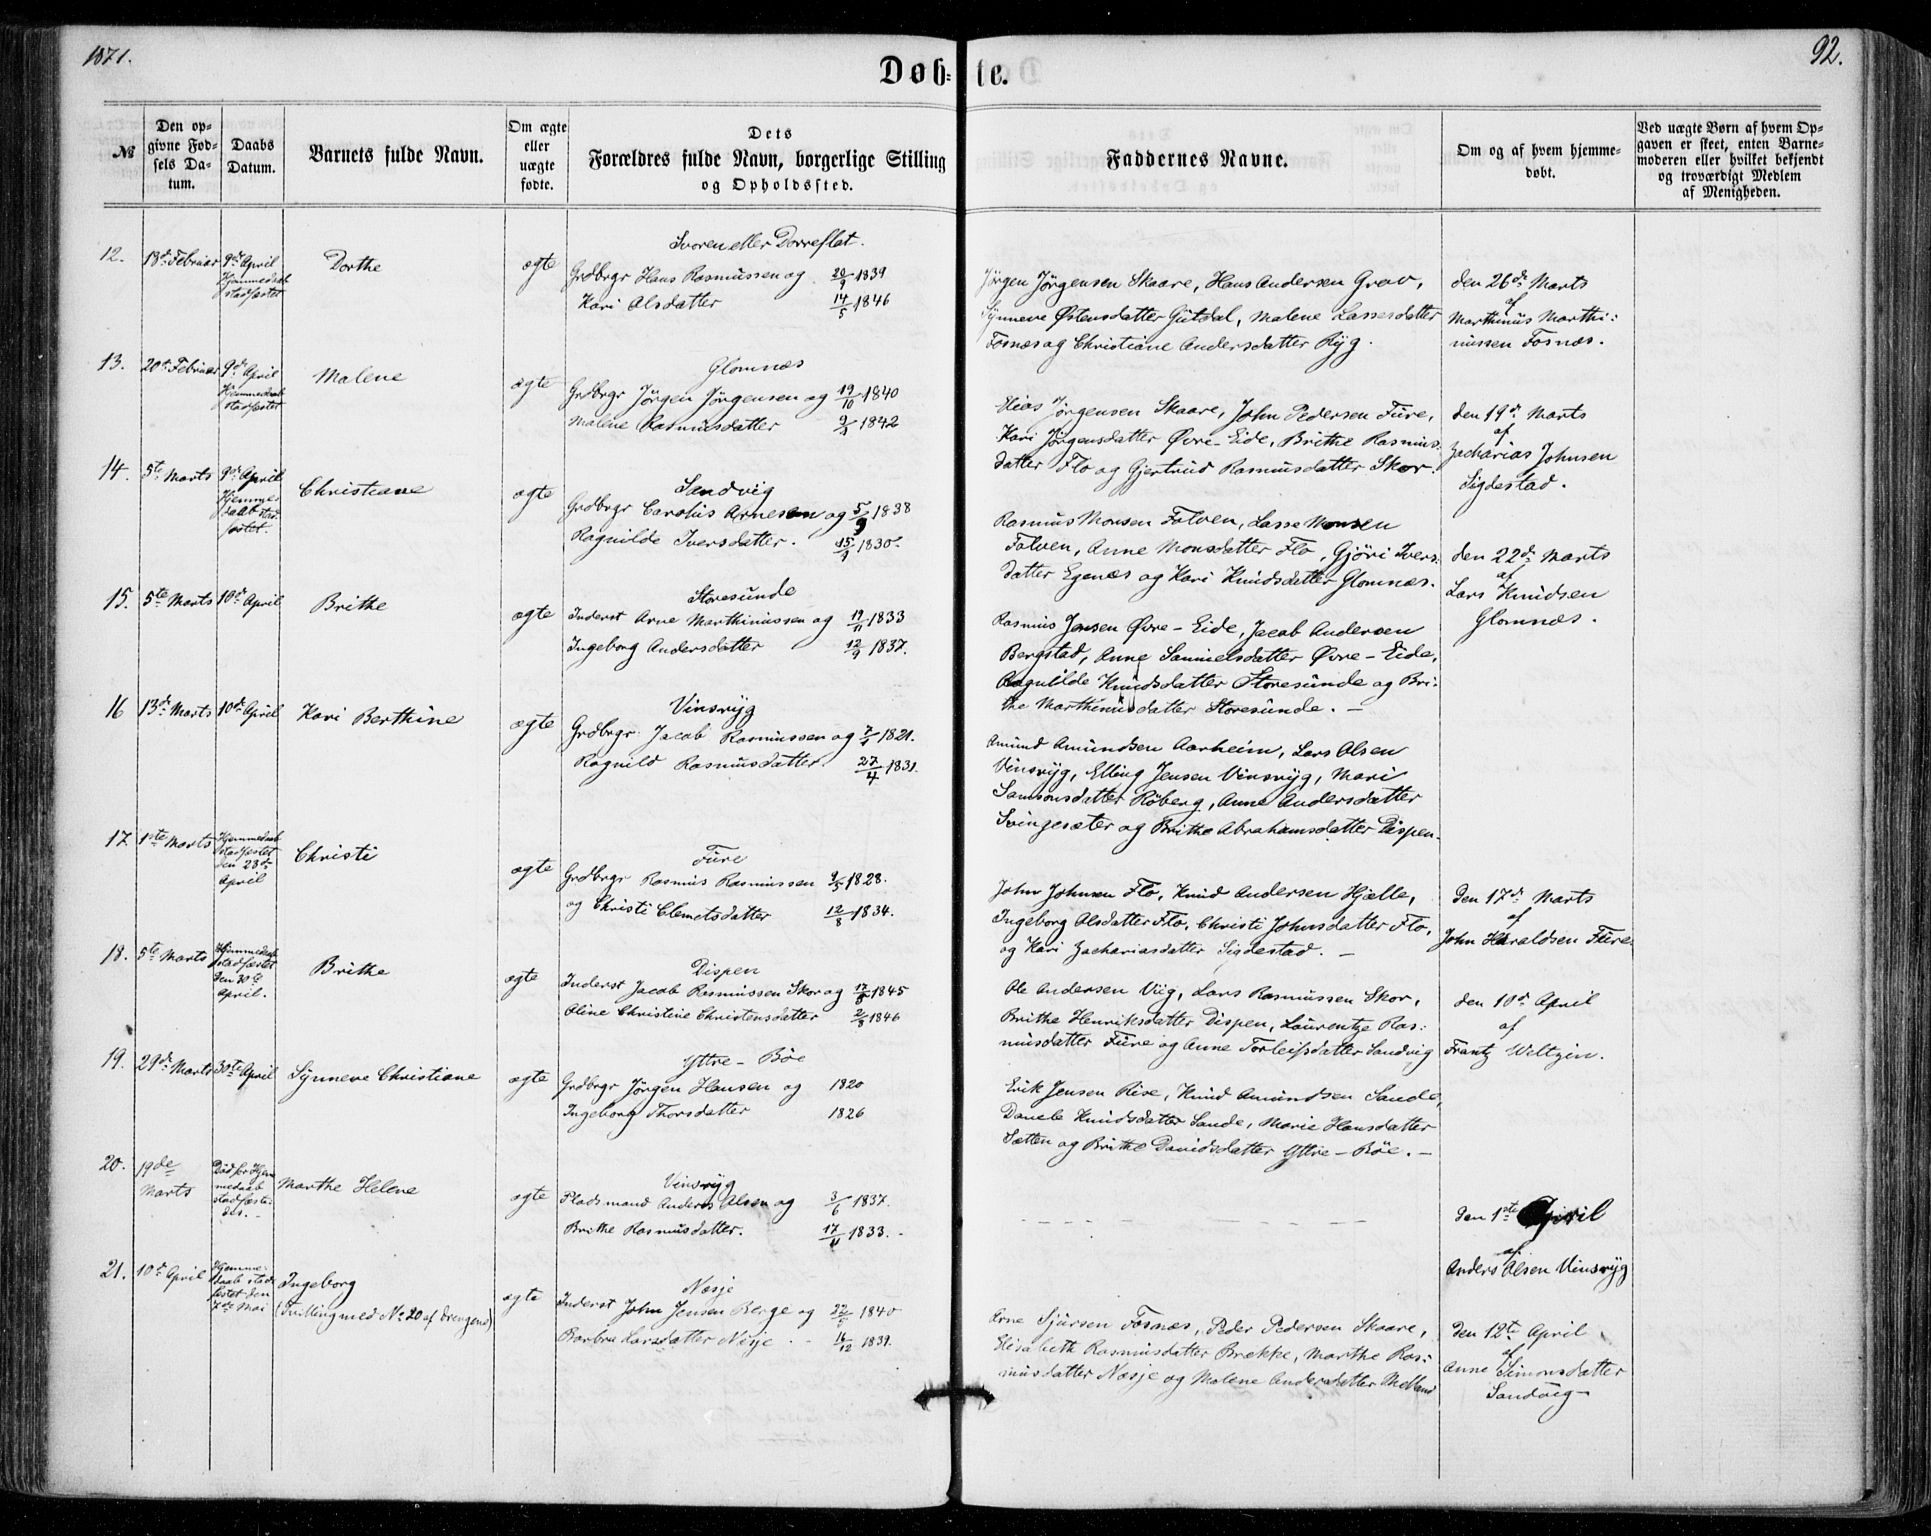 1871.
92.
Døb-
te.
№
Den op-
givne Fød-
sels Da-
tum.
Daabs
Datum.
Barnets fulde Navn.
Om ægte
eller
uægte
fødte.
Dets
Forældres fulde Navn, borgerlige Stilling
og Opholdssted.
Faddernes Navne.
Om og af hvem hjemme-
døbt.
Ved uægte Børn af hvem Op-
gaven er skeet, enten Barne-
moderen eller hvilket bekjendt
og troværdigt Medlem
af Menigheden.
12.
18de Februar
9de April
Hjemmedaab
stadfæstet
Dorthe
ægte
Svoren eller Dorreflot.
Grdbrgr Hans Rasmussen og 20/9 1839
Kari Olsdatter 14/5 1846
Jörgen Jörgensen Skaare, Hans Andersen Grov,
Synneve Østensdatter Gütdal, Malene Lassesdatter
Fosnæs og Christiane Andersdatter Ryg.
den 26de Marts
af
Marthinus Marthi:
nussen Fosnæs.
13.
20de Februar
9de April
Hjemmedaab
stadfæstet
Malene
ægte
Glomnæs
Grdbrgr Jörgen Jörgensen og 19/10 1840
Malene Rasmusdatter 9/4 1842
Elias Jörgensen Skaare, John Pedersen Füre,
Kari Jörgensdatter Øvre-Eide, Brithe Rasmus-
datter Flo og Gjertrud Rasmusdatter Skor.
den 19de Marts
af
Zacharias Johnsen
Sigdestad.
14.
5te Marts
9de April
Hjemme-
daab stad
fæstet.
Christiane
ægte
Sandvig
Grdbrgr Carolus Arnesen og 5/9 1838
Ragnilde Iversdatter. 15/9 1830.
Rasmus Monsen Folven, Lasse Monsen
Folven, Anne Monsdatter Flo, Gjöri Ivers-
datter Egenæs og Kari Knudsdatter Glomnæs.
den 22de Marts
af
Lars Knudsen
Glomnæs.
15.
5te Marts
10de April
Brithe
ægte
Storesunde
Inderst Arne Marthinussen og 19/11 1833
Ingeborg Andersdatter 12/9 1837.
Rasmus Jensen Øvre-Eide, Jacob Andersen
Bergstad, Anne Samuelsdatter Øvre-Eide,
Ragnilde Knudsdatter Storesunde og Bri-
the Marthinusdatter Storesunde. –
16
13de Marts
10de April
Kari Berthine
ægte
Vinsryg
Grdbrgr Jacob Rasmussen og 7/4 1821.
Ragnild Rasmusdatter 27/4 1831.
Amund Amundsen Aarheim, Lars Olsen
Vinsryg, Elling Jensen Vinsryg, Mari
Samsonsdatter Röberg, Anne Andersdatter
Svingesæter og Brithe Abrahamsdatter Dispen.
17.
1ste Marts
Hjemmedaab
stadfæstet
den 28de
April
Christi
ægte
Füre
Grdbrgr Rasmus Rasmussen 9/5 1828.
og Christi Clemetsdatter 12/8 1834.
John Johnsen Flo, Knud Andersen Hjelle,
Ingeborg Olsdatter Flo, Christi Johnsdatter Flo,
og Kari Zachariasdatter Sigdestad. –
Den 17de Marts
af
John Haraldsen Füre
18.
5te Marts
Hjemmedaab
stadfæstet
den 30te
April.
Brithe
ægte
Dispen
Inderst Jacob Rasmussen Skor og 17/8 1845
Oline Christine Christensdatter 2/8 1846
Ole Andersen Viig, Lars Rasmussen Skor,
Brithe Henriksdatter Dispen, Laurentze Ras:
musdatter Füre og Anne Torleifsdatter Sandvig
den 10de April
af
Frantz Weltzin.
19.
29de Marts
30te April
Synneve Christiane
ægte
Yttre-Böe
Grdbrgr Jörgen Hansen og 1820
Ingeborg Thorsdatter 1826
Erik Jensen Rise, Knud Amundsen Sande,
Danele Knudsdatter Sande, Marie Hansdatter
Sætten og Brithe Davidsdatter Yttre-Böe. –
20.
19de
Marts
Død før Hjem
medaab
stadfæste-
des. –
Marthe Helene
ægte
Vinsryg
Pladsmand Anders Olsen og 3/6 1837.
Brithe Rasmusdatter. 17/11 1833. –
den 1ste April
af
Anders Olsen Vinsryg
21.
10de April
Hjemme-
daab stad-
fæstet den
7de Mai
Ingeborg
(Tvilling med № 20 af Drengene)
ægte
Nesje
Inderst John Jensen Berge og 22/5 1840
Barbra Larsdatter Nesje 16/12 1839.
Arne Sjursen Fosnæs, Peder Pedersen Skaare,
Elisabeth Rasmusdatter Brække, Marthe Ras:
musdatter Nesje og Malene Andersdatter Melland
den 12te April
af
Anne Simonsdatter
Sandvig